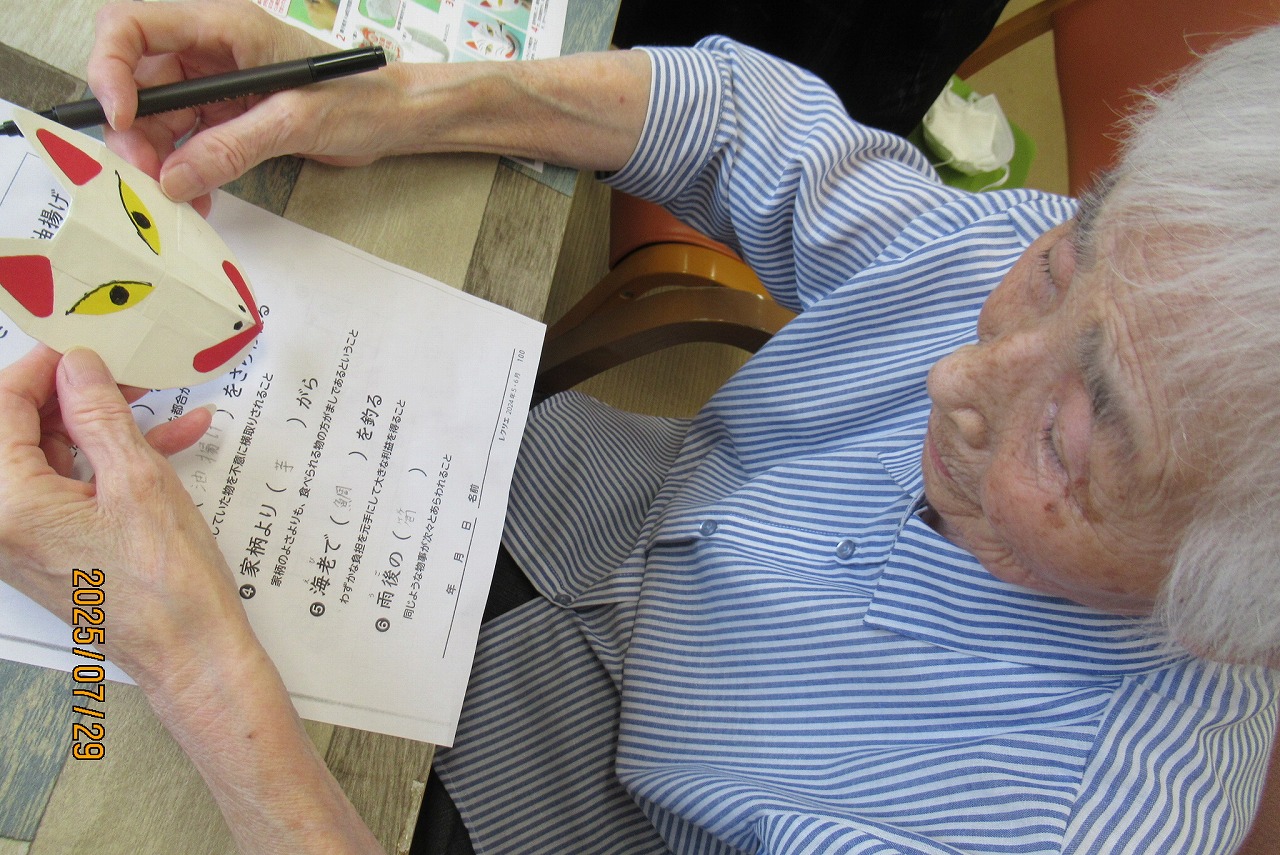 油揚げ
) をさら
(油揚げ
していた物を不意に横取りされること
❹ 家柄より ( 芋 ) がら
家柄のよさよりも、食べられる物の方がましであるということ
❺ 海老で ( 鯛 ) を釣る
えび
わずかな負担を元手にして大きな利益を得ること
❻ 雨後の ( 筍 )
うご
同じような物事が次々とあらわれること
年 月 日 名前
レクリエ 2024年5・6月 100
2025/07/29